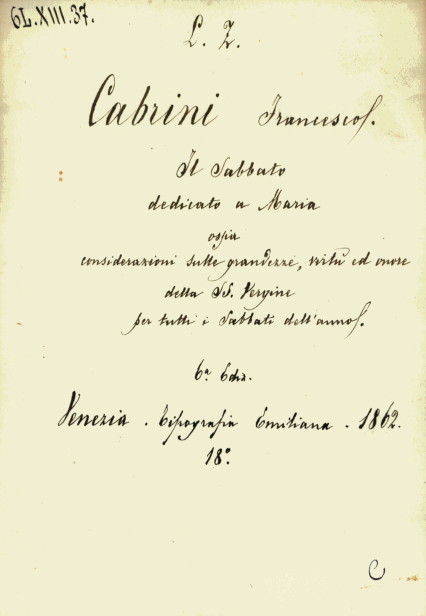 6L.XIII.37.
L. Z.
Cabrini Francesco.
Il Sabbato
dedicato a Maria
ossia
considerazioni sulle grandezze, virtù ed onore
della SS. Vergine
per tutti i Sabbati dell'anno.
6ª Ediz.
Venezia. Tipografia Emiliana. 1862.
18°.
C